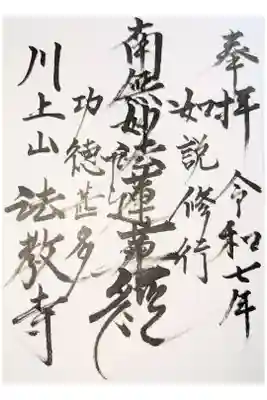 奉拝 令和七年
如説修行
南無妙法蓮華経
功徳甚多
川上山
法教寺